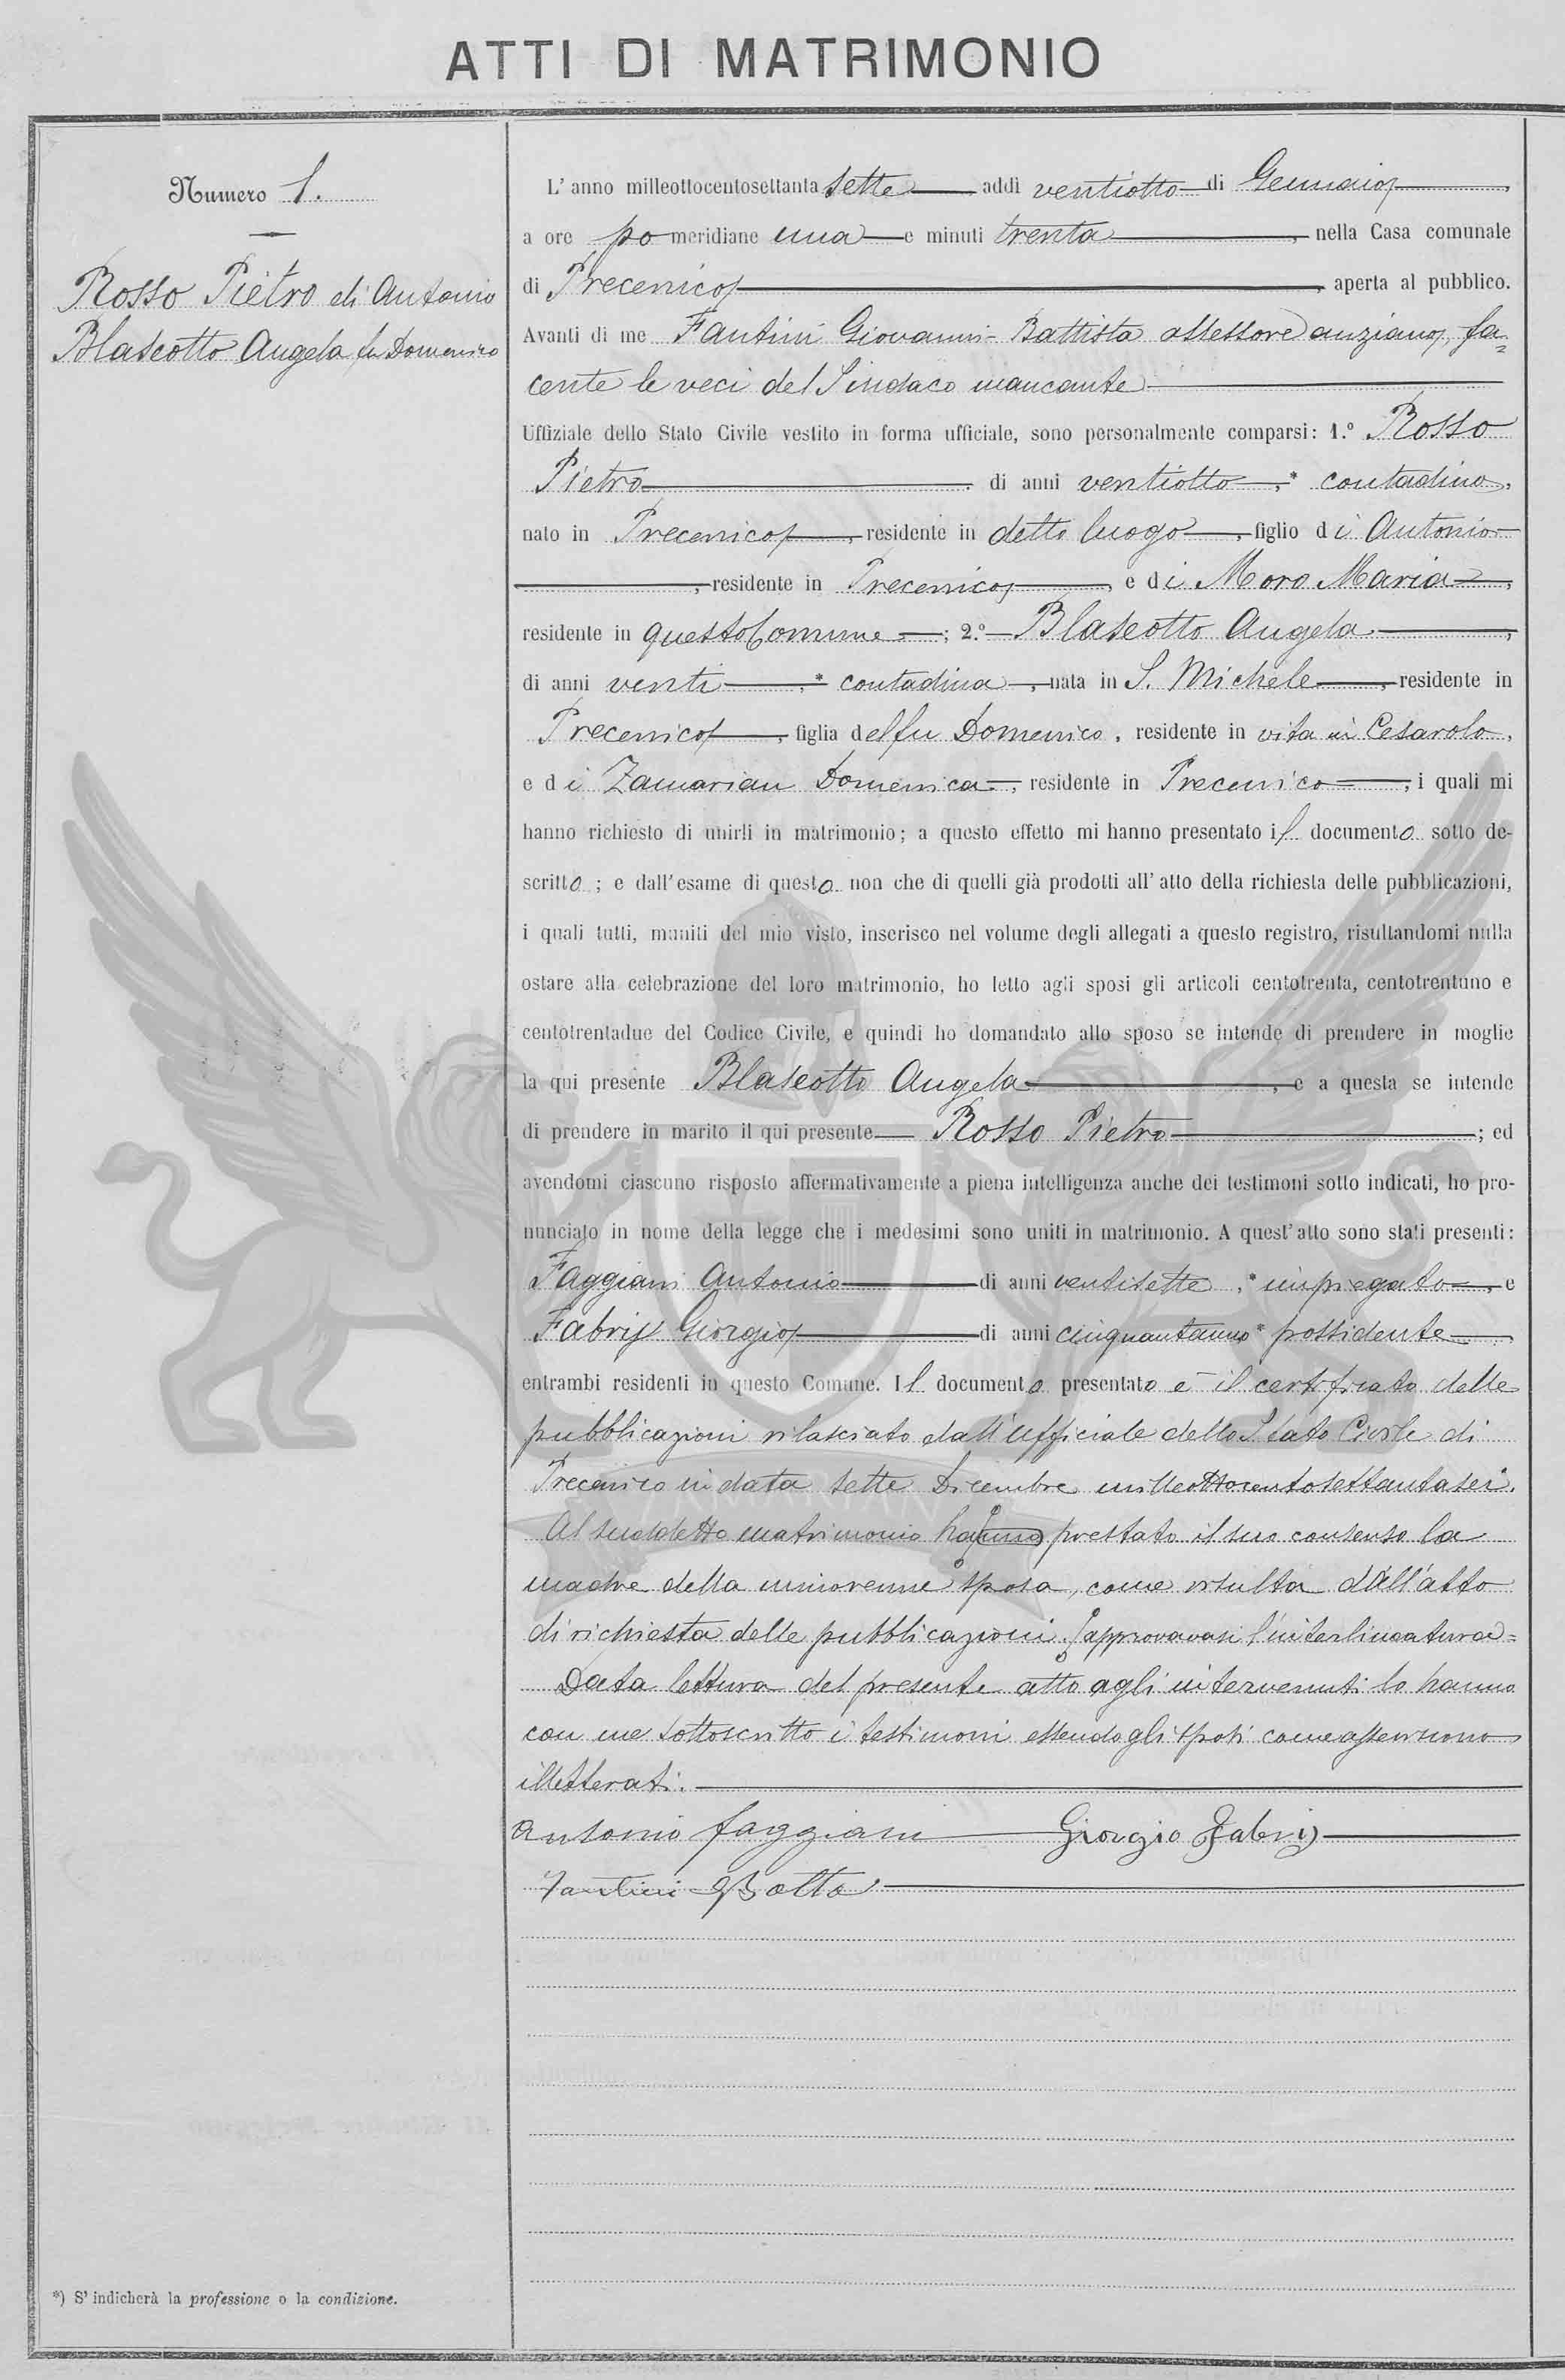 ATTI DI MATRIMONIO
Numero 1.
Rosso Pietro di Antonio
Blaseotto Angela fu Domenico
L'anno milleottocentosettanta sette addì ventiotto di Gennaio,
a ore po meridiane una e minuti trenta, nella Casa comunale
di Precenico, aperta al pubblico.
Avanti di me Fantini Giovanni-Battista assessore anziano, fa=
cente le veci del Sindaco mancante
Uffiziale dello Stato Civile vestito in forma ufficiale, sono personalmente comparsi: 1.º Rosso
Pietro, di anni ventiotto,* contadino,
nato in Precenico, residente in detto luogo, figlio di Antonio
, residente in Precenico, e di Moro Maria,
residente in questo Comune; 2.º Blaseotto Angela,
di anni venti,* contadina, nata in S. Michele, residente in
Precenico, figlia del fu Domenico, residente in vita in Cesarolo,
e di Zamarian Domenica, residente in Precenico, i quali mi
hanno richiesto di unirli in matrimonio; a questo effetto mi hanno presentato il documento sotto de-
scritto; e dall'esame di questo non che di quelli già prodotti all'atto della richiesta delle pubblicazioni,
i quali tutti, muniti del mio visto, inserisco nel volume degli allegati a questo registro, risultandomi nulla
ostare alla celebrazione del loro matrimonio, ho letto agli sposi gli articoli centotrenta, centotrentuno e
centotrentadue del Codice Civile, e quindi ho domandato allo sposo se intende di prendere in moglie
la qui presente Blaseotto Angela, e a questa se intende
di prendere in marito il qui presente Rosso Pietro; ed
avendomi ciascuno risposto affermativamente a piena intelligenza anche dei testimoni sotto indicati, ho pro-
nunciato in nome della legge che i medesimi sono uniti in matrimonio. A quest'atto sono stati presenti:
Faggiani Antonio di anni ventisette,* impiegato, e
Fabris Giorgio di anni cinquantauno* possidente,
entrambi residenti in questo Comune. Il documento presentato è il certificato delle
pubblicazioni rilasciato dall'ufficiale dello Stato Civile di
Precenico in data sette Dicembre milleottocentosettantasei.
Al suddetto matrimonio ha prestato il suo consenso la
madre della minorenne sposa, come risulta dall'atto
di richiesta delle pubblicazioni. approvavasi l'interlineatura=
Data lettura del presente atto agli intervenuti lo hanno
con me sottoscritto i testimoni essendo gli sposi come asseriscono
illetterati.
Antonio Faggiani Giorgio Fabris
Fantini GBatta
*) S'indicherà la professione o la condizione.